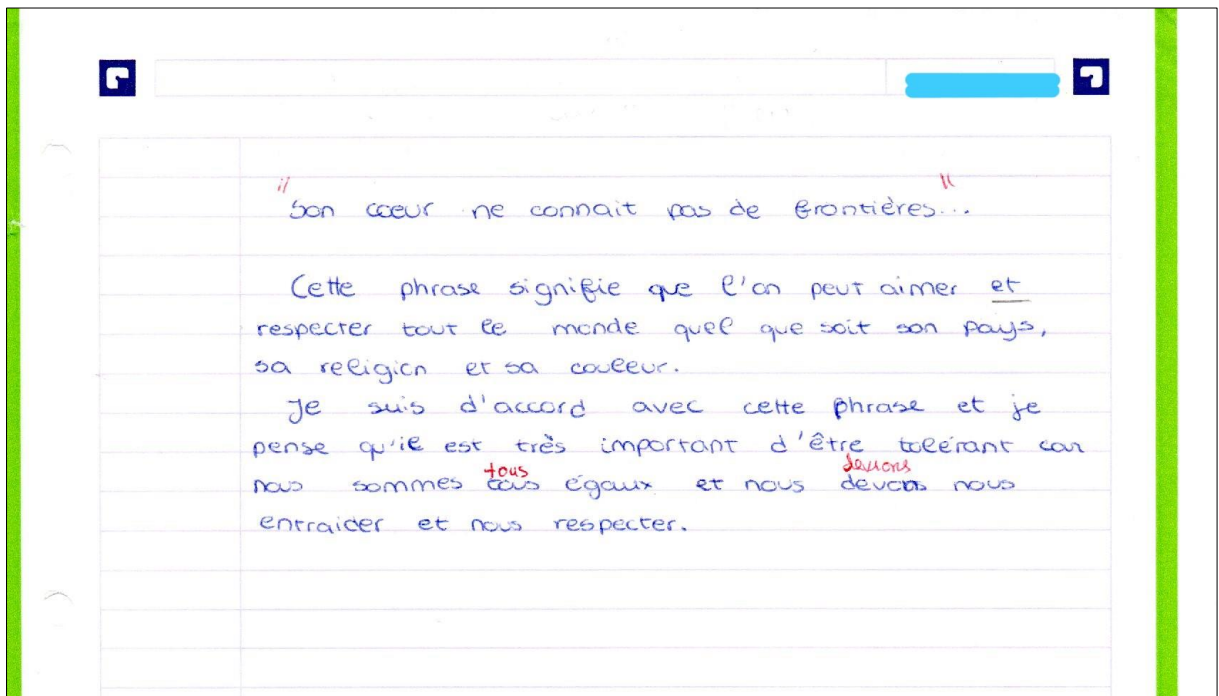 "Son coeur ne connait pas de frontières..."
Cette phrase signifie que l'on peut aimer et
respecter tout le monde quel que soit son pays,
sa religion et sa couleur.
Je suis d'accord avec cette phrase et je
pense qu'il est très important d'être tolérant car
tous devons
nous sommes tous égaux et nous devons nous
entraider et nous respecter.